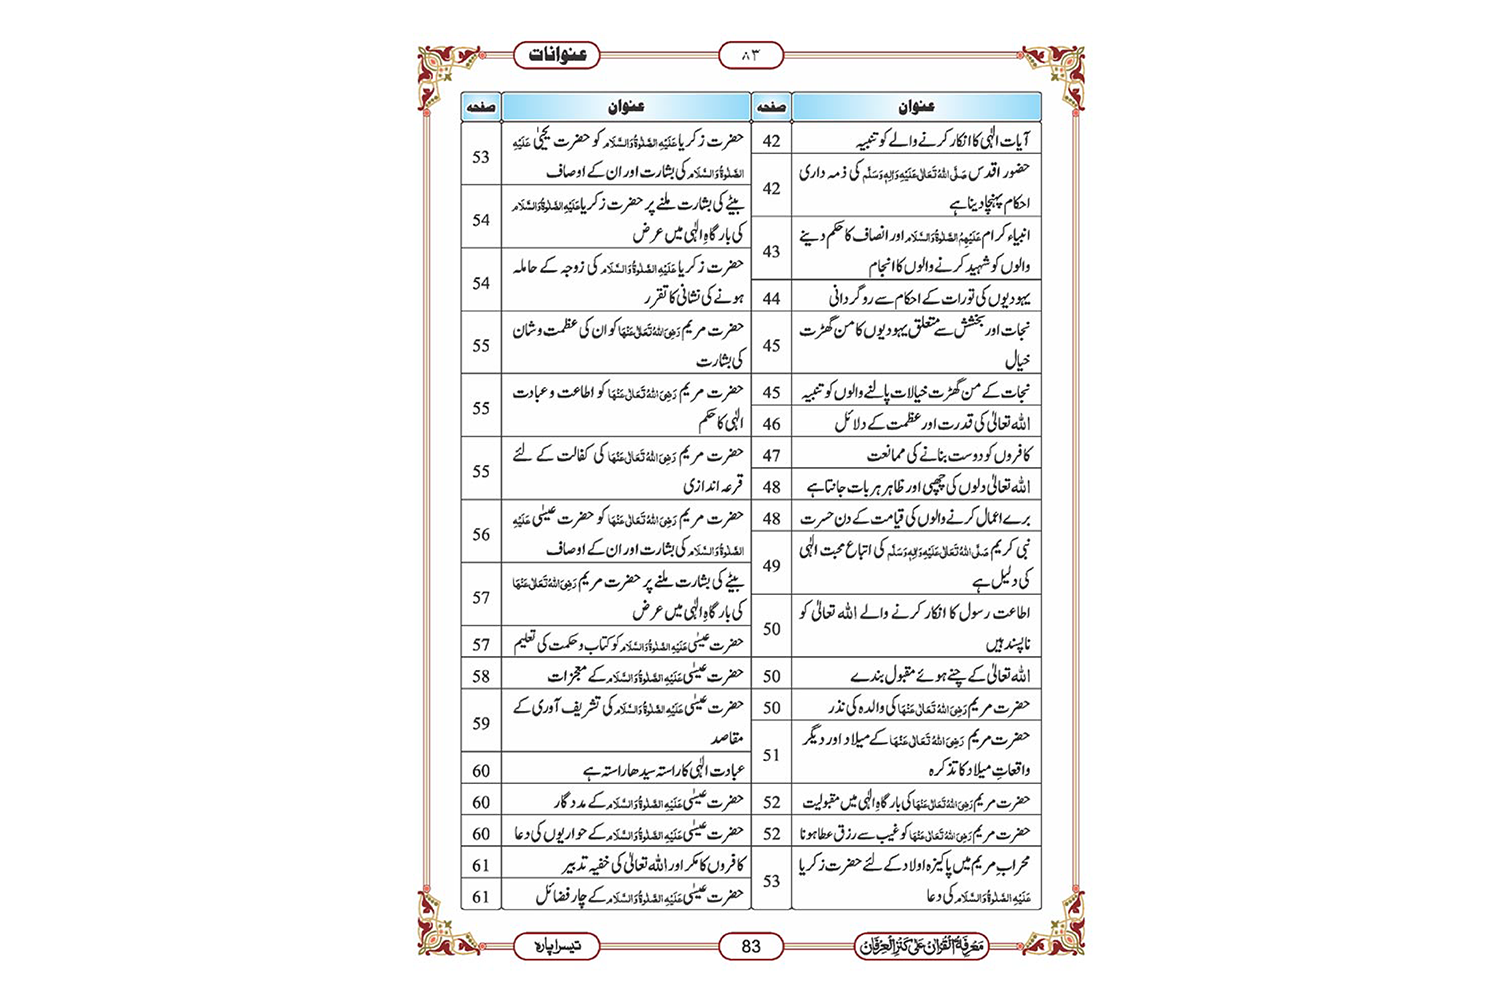 عنوانات
۸۳
عنوان
صفحہ
آیات الٰہی کا انکار کرنے والے کو تنبیہ
42
حضور اقدس صَلَّی اللہُ تَعَالٰی عَلَیْہِ وَاٰلِہٖ وَسَلَّم کی ذمہ داری
احکام پہنچا دینا ہے
42
انبیاء کرام عَلَیْہِمُ الصَّلٰوۃُ وَالسَّلَام اور انصاف کا حکم دینے
والوں کو شہید کرنے والوں کا انجام
43
یہودیوں کی تورات کے احکام سے روگردانی
44
نجات اور بخشش سے متعلق یہودیوں کا من گھڑت
خیال
45
نجات کے من گھڑت خیالات پالنے والوں کو تنبیہ
45
اللہ تعالیٰ کی قدرت اور عظمت کے دلائل
46
کافروں کو دوست بنانے کی ممانعت
47
اللہ تعالیٰ دلوں کی چھپی اور ظاہر ہر بات جانتا ہے
48
برے اعمال کرنے والوں کی قیامت کے دن حسرت
48
نبی کریم صَلَّی اللہُ تَعَالٰی عَلَیْہِ وَاٰلِہٖ وَسَلَّم کی اتباع محبت الٰہی
کی دلیل ہے
49
اطاعت رسول کا انکار کرنے والے اللہ تعالیٰ کو
ناپسند ہیں
50
اللہ تعالیٰ کے چنے ہوئے مقبول بندے
50
حضرت مریم رَضِیَ اللہُ تَعَالٰی عَنْہَا کی والدہ کی نذر
50
حضرت مریم رَضِیَ اللہُ تَعَالٰی عَنْہَا کے میلاد اور دیگر
واقعاتِ میلاد کا تذکرہ
51
حضرت مریم رَضِیَ اللہُ تَعَالٰی عَنْہَا کی بارگاہِ الٰہی میں مقبولیت
52
حضرت مریم رَضِیَ اللہُ تَعَالٰی عَنْہَا کو غیب سے رزق عطا ہونا
52
محرابِ مریم میں پاکیزہ اولاد کے لئے حضرت زکریا
عَلَیْہِ الصَّلٰوۃُ وَالسَّلَام کی دعا
53
عنوان
صفحہ
حضرت زکریا عَلَیْہِ الصَّلٰوۃُ وَالسَّلَام کو حضرت یحییٰ عَلَیْہِ
الصَّلٰوۃُ وَالسَّلَام کی بشارت اور ان کے اوصاف
53
بیٹے کی بشارت ملنے پر حضرت زکریا عَلَیْہِ الصَّلٰوۃُ وَالسَّلَام
کی بارگاہِ الٰہی میں عرض
54
حضرت زکریا عَلَیْہِ الصَّلٰوۃُ وَالسَّلَام کی زوجہ کے حاملہ
ہونے کی نشانی کا تقرر
54
حضرت مریم رَضِیَ اللہُ تَعَالٰی عَنْہَا کو ان کی عظمت و شان
کی بشارت
55
حضرت مریم رَضِیَ اللہُ تَعَالٰی عَنْہَا کو اطاعت و عبادت
الٰہی کا حکم
55
حضرت مریم رَضِیَ اللہُ تَعَالٰی عَنْہَا کی کفالت کے لئے
قرعہ اندازی
55
حضرت مریم رَضِیَ اللہُ تَعَالٰی عَنْہَا کو حضرت عیسٰی عَلَیْہِ
الصَّلٰوۃُ وَالسَّلَام کی بشارت اور ان کے اوصاف
56
بیٹے کی بشارت ملنے پر حضرت مریم رَضِیَ اللہُ تَعَالٰی عَنْہَا
کی بارگاہِ الٰہی میں عرض
57
حضرت عیسٰی عَلَیْہِ الصَّلٰوۃُ وَالسَّلَام کو کتاب و حکمت کی تعلیم
57
حضرت عیسٰی عَلَیْہِ الصَّلٰوۃُ وَالسَّلَام کے معجزات
58
حضرت عیسٰی عَلَیْہِ الصَّلٰوۃُ وَالسَّلَام کی تشریف آوری کے
مقاصد
59
عبادت الٰہی کا راستہ سیدھا راستہ ہے
60
حضرت عیسٰی عَلَیْہِ الصَّلٰوۃُ وَالسَّلَام کے مددگار
60
حضرت عیسٰی عَلَیْہِ الصَّلٰوۃُ وَالسَّلَام کے حواریوں کی دعا
60
کافروں کا مکر اور اللہ تعالیٰ کی خفیہ تدبیر
61
حضرت عیسٰی عَلَیْہِ الصَّلٰوۃُ وَالسَّلَام کے چار فضائل
61
مَعْرِفَۃُ الْقُرْاٰن عَلٰی کَنْزِ الْعِرْفَان
83
تیسرا پارہ